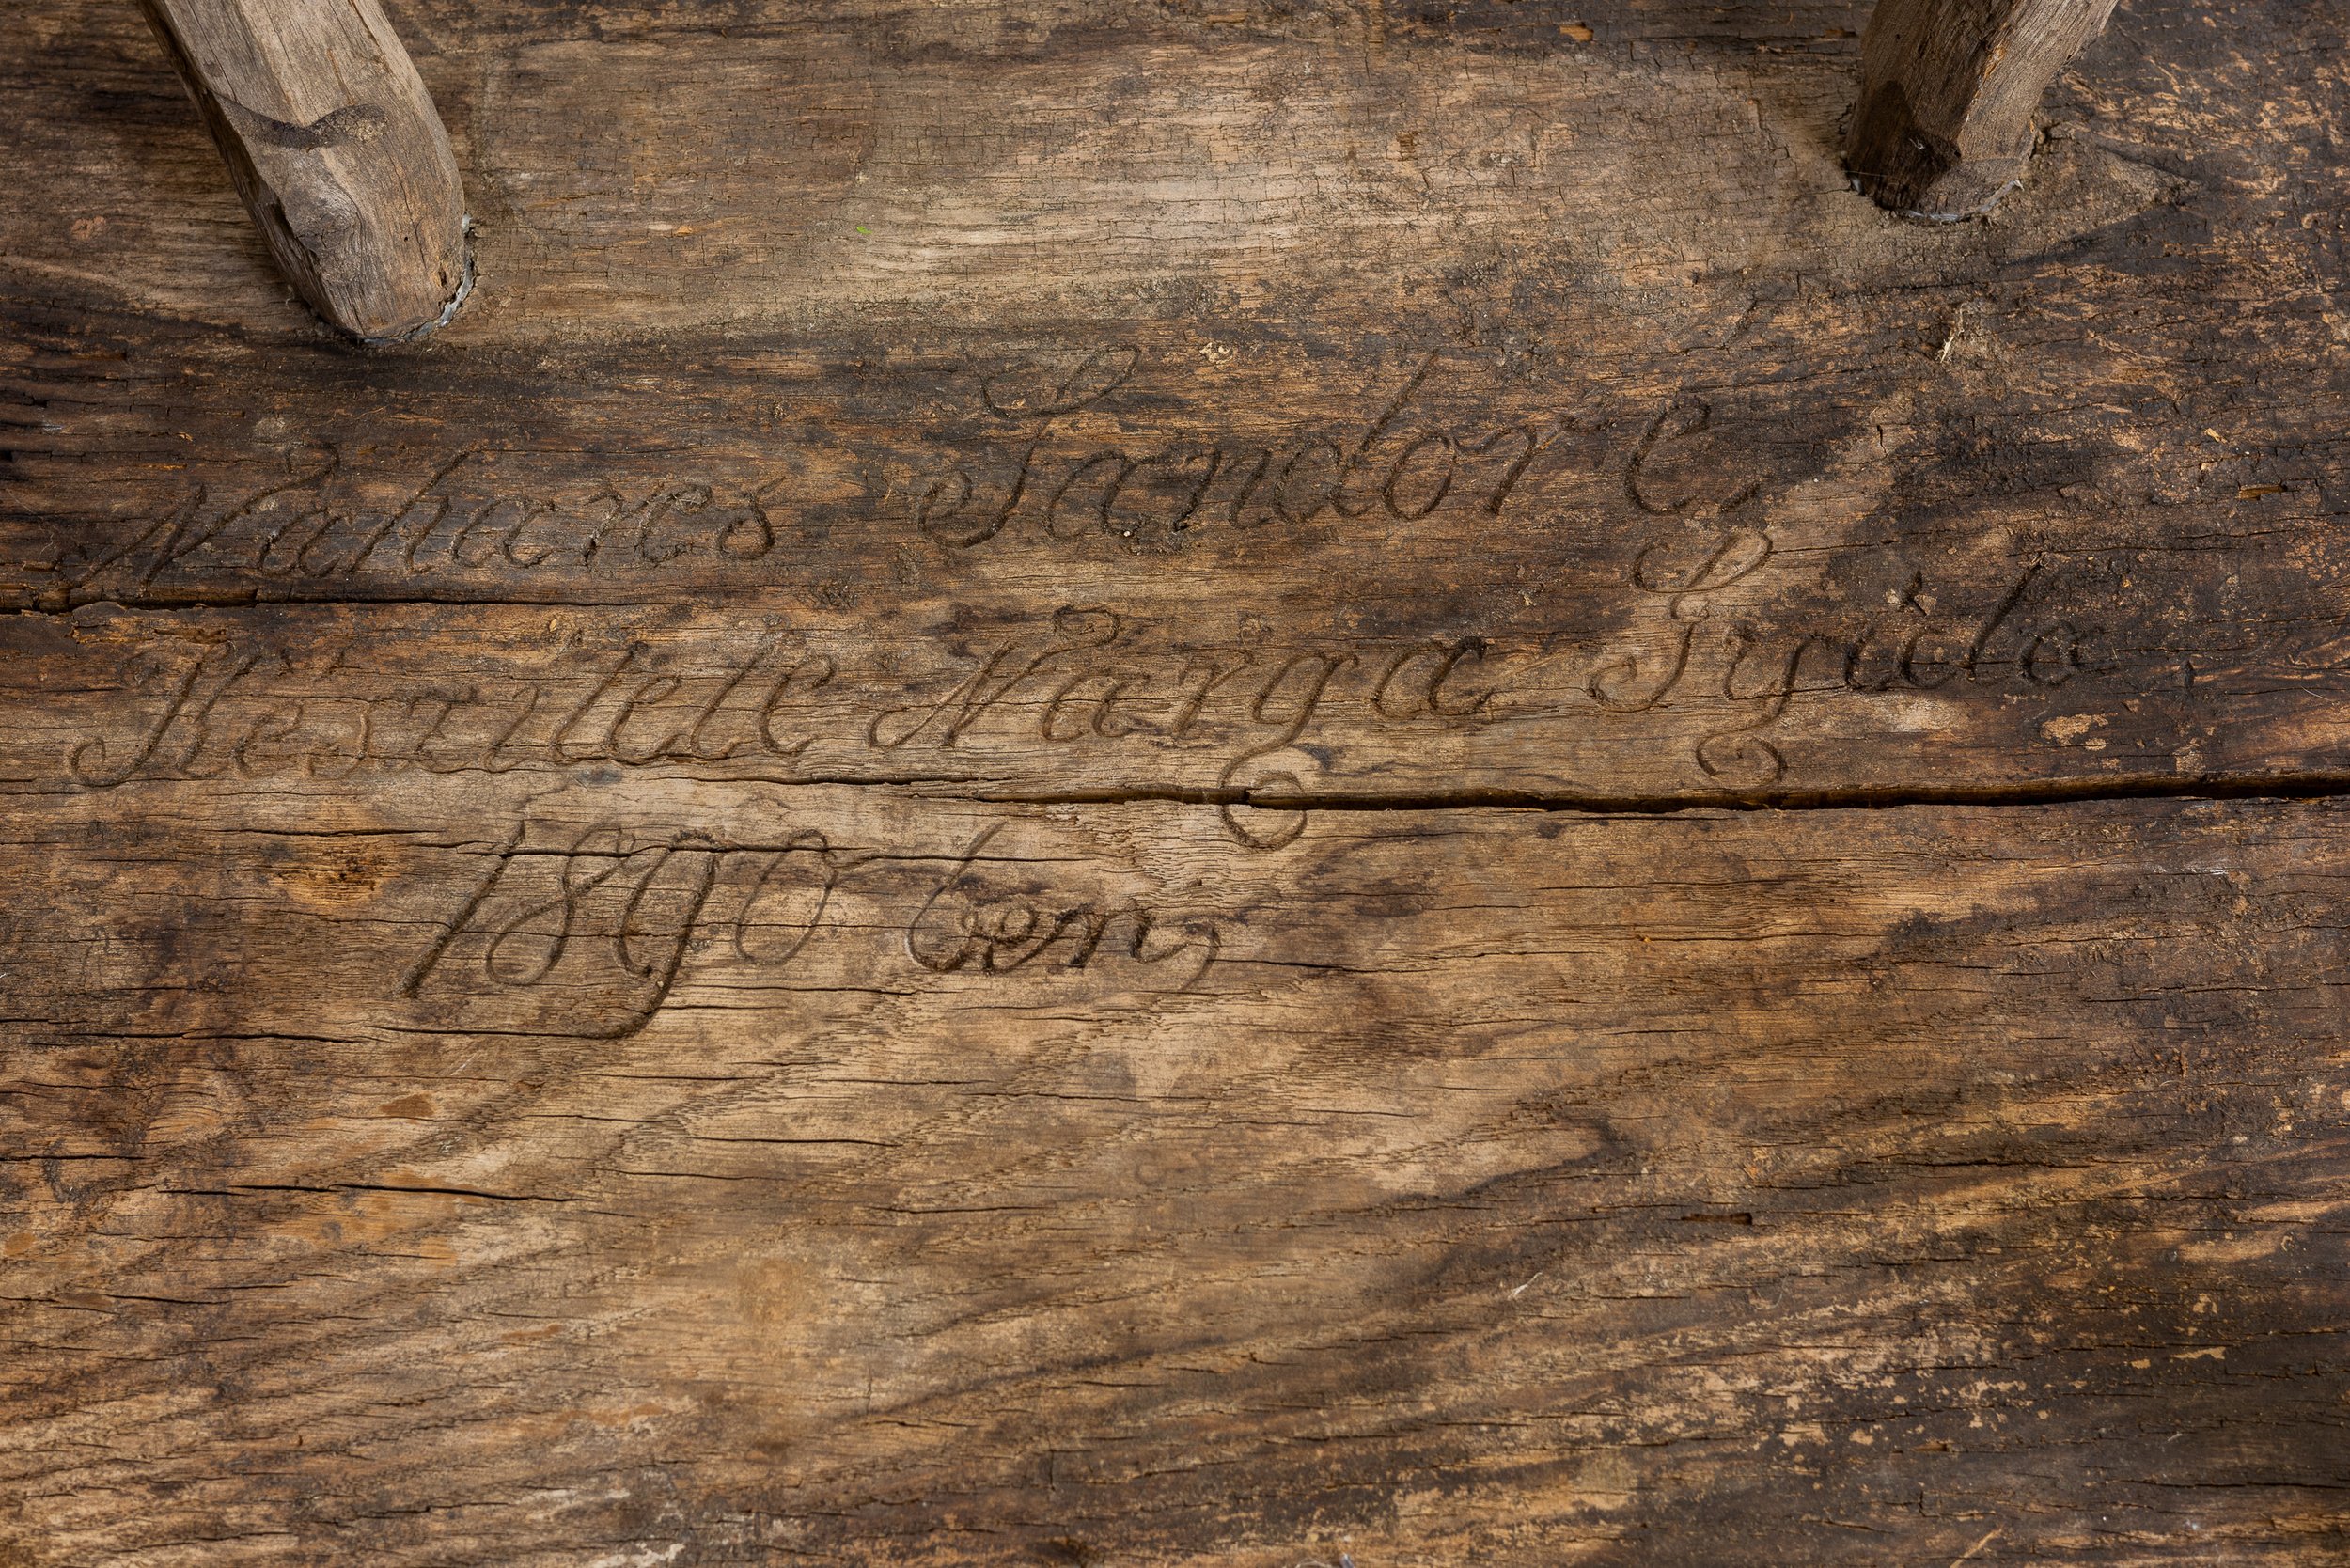 Vahares Sandore,
Keszitete Varga Gyula
1890 ben,